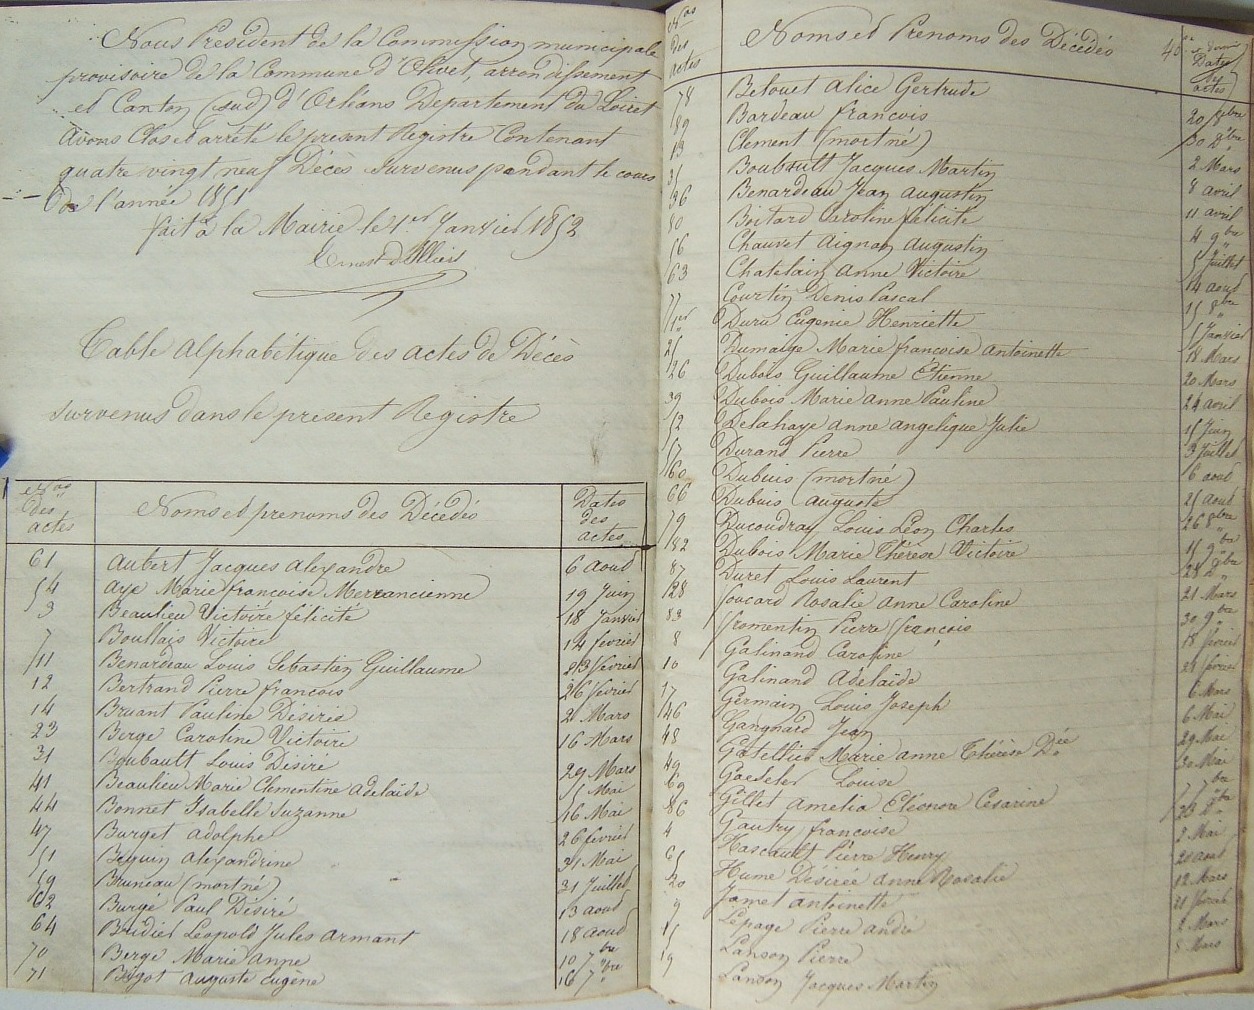 Nous President de la Commission municipale
provisoire de la Commune d'Olivet, arrondissement
et Canton (sud) d'Orléans Departement du Loiret
avons Clos et arrêté le present Registre Contenant
quatre vingt neuf Décès survenus pendant le cours
de l'année 1851
fait à la Mairie le 1er Janvier 1852
Ernest d'Illiers
Table alphabétique des actes de Décès
survenus dans le present Registre
Nos des actes Noms et prenoms des Décédés Dates des actes
61 Aubert Jacques Alexandre 6 aout
54 Marie françoise 19 Juin
3 Beaulieu Victoire félicité 18 Janvier
7 Boullais Victoire 14 fevrier
11 Benardeau Louis Sebastien Guillaume 23 fevrier
12 Bertrand Pierre francois 26 fevrier
14 Bruant Pauline Désirée 2 Mars
23 Berge Caroline Victoire 16 Mars
31 Boubault Louis Desiré 29 Mars
41 Beaulieu Marie Clementine Adelaïde 5 Mai
44 Bonnet Isabelle Suzanne 16 Mai
47 Burget Adolphe 26 fevrier
51 Beguin Alexandrine 31 Mai
59 Bruneau (mort né) 31 Juillet
62 Burge Paul Désiré 13 aout
64 Bridier Léopold Jules Armant 18 aout
70 Berge Marie Anne 10 7bre
71 Bigot Auguste Eugène 16 7bre
Nos des actes Noms et Prénoms des Décédés Dates des actes
78 Belouet Alice Gertrude 20 8bre
89 Bardeau francois 30 Dbre
13 Clement (mort né) 2 Mars
35 Boubault Jacques Martin 8 avril
36 Benardeau Jean Augustin 11 avril
80 Boitard Caroline félicité 4 9bre
56 Chauvet Aignan Augustin 5 Juillet
63 Chatelain Anne Victoire 14 aout
77 Courtin Denis Pascal 15 8bre
1er Duru Eugenie Henriette 5 Janvier
25 Dumaige Marie francoise Antoinette 18 Mars
26 Dubois Guillaume Étienne 20 Mars
39 Dubois Marie Anne Pauline 24 avril
52 Delahaye Anne Angelique Julie 15 Juin
57 Durand Pierre 3 Juillet
60 Dubuis (mort né) 6 aout
66 Dubuis Auguste 25 aout
79 Ducoudray Louis Léon Charles 26 8bre
82 Dubois Marie Thérèse Victoire 15 9bre
87 Duret Louis Laurent 28 Dbre
28 foucard Rosalie Anne Caroline 21 Mars
83 fromentin Pierre françois 30 9bre
8 Galinand Caroline 18 fevrier
10 Galinand Adelaïde 21 fevrier
17 Germain Louis Joseph 6 Mars
46 Gangnard Jean 6 Mai
48 Gatellier Marie Anne Thérèse Dée 29 Mai
49 Louise 30 Mai
69 Gillet Amelia Eléonore Césarine 7 7bre
86 Gautry francoise 23 Dbre
4 Hascault Pierre Henry
65 Hume Désirée Anne Rosalie
20 Jamet Antoinette 12 Mars
9 Lepage Pierre André 21 fevrier
15 Lanson Pierre 2 Mars
19 Lanson Jacques Martin 8 Mars